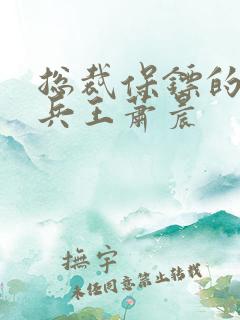 总裁保镖的
兵王萧晨
撫宇
未经同意禁止转载